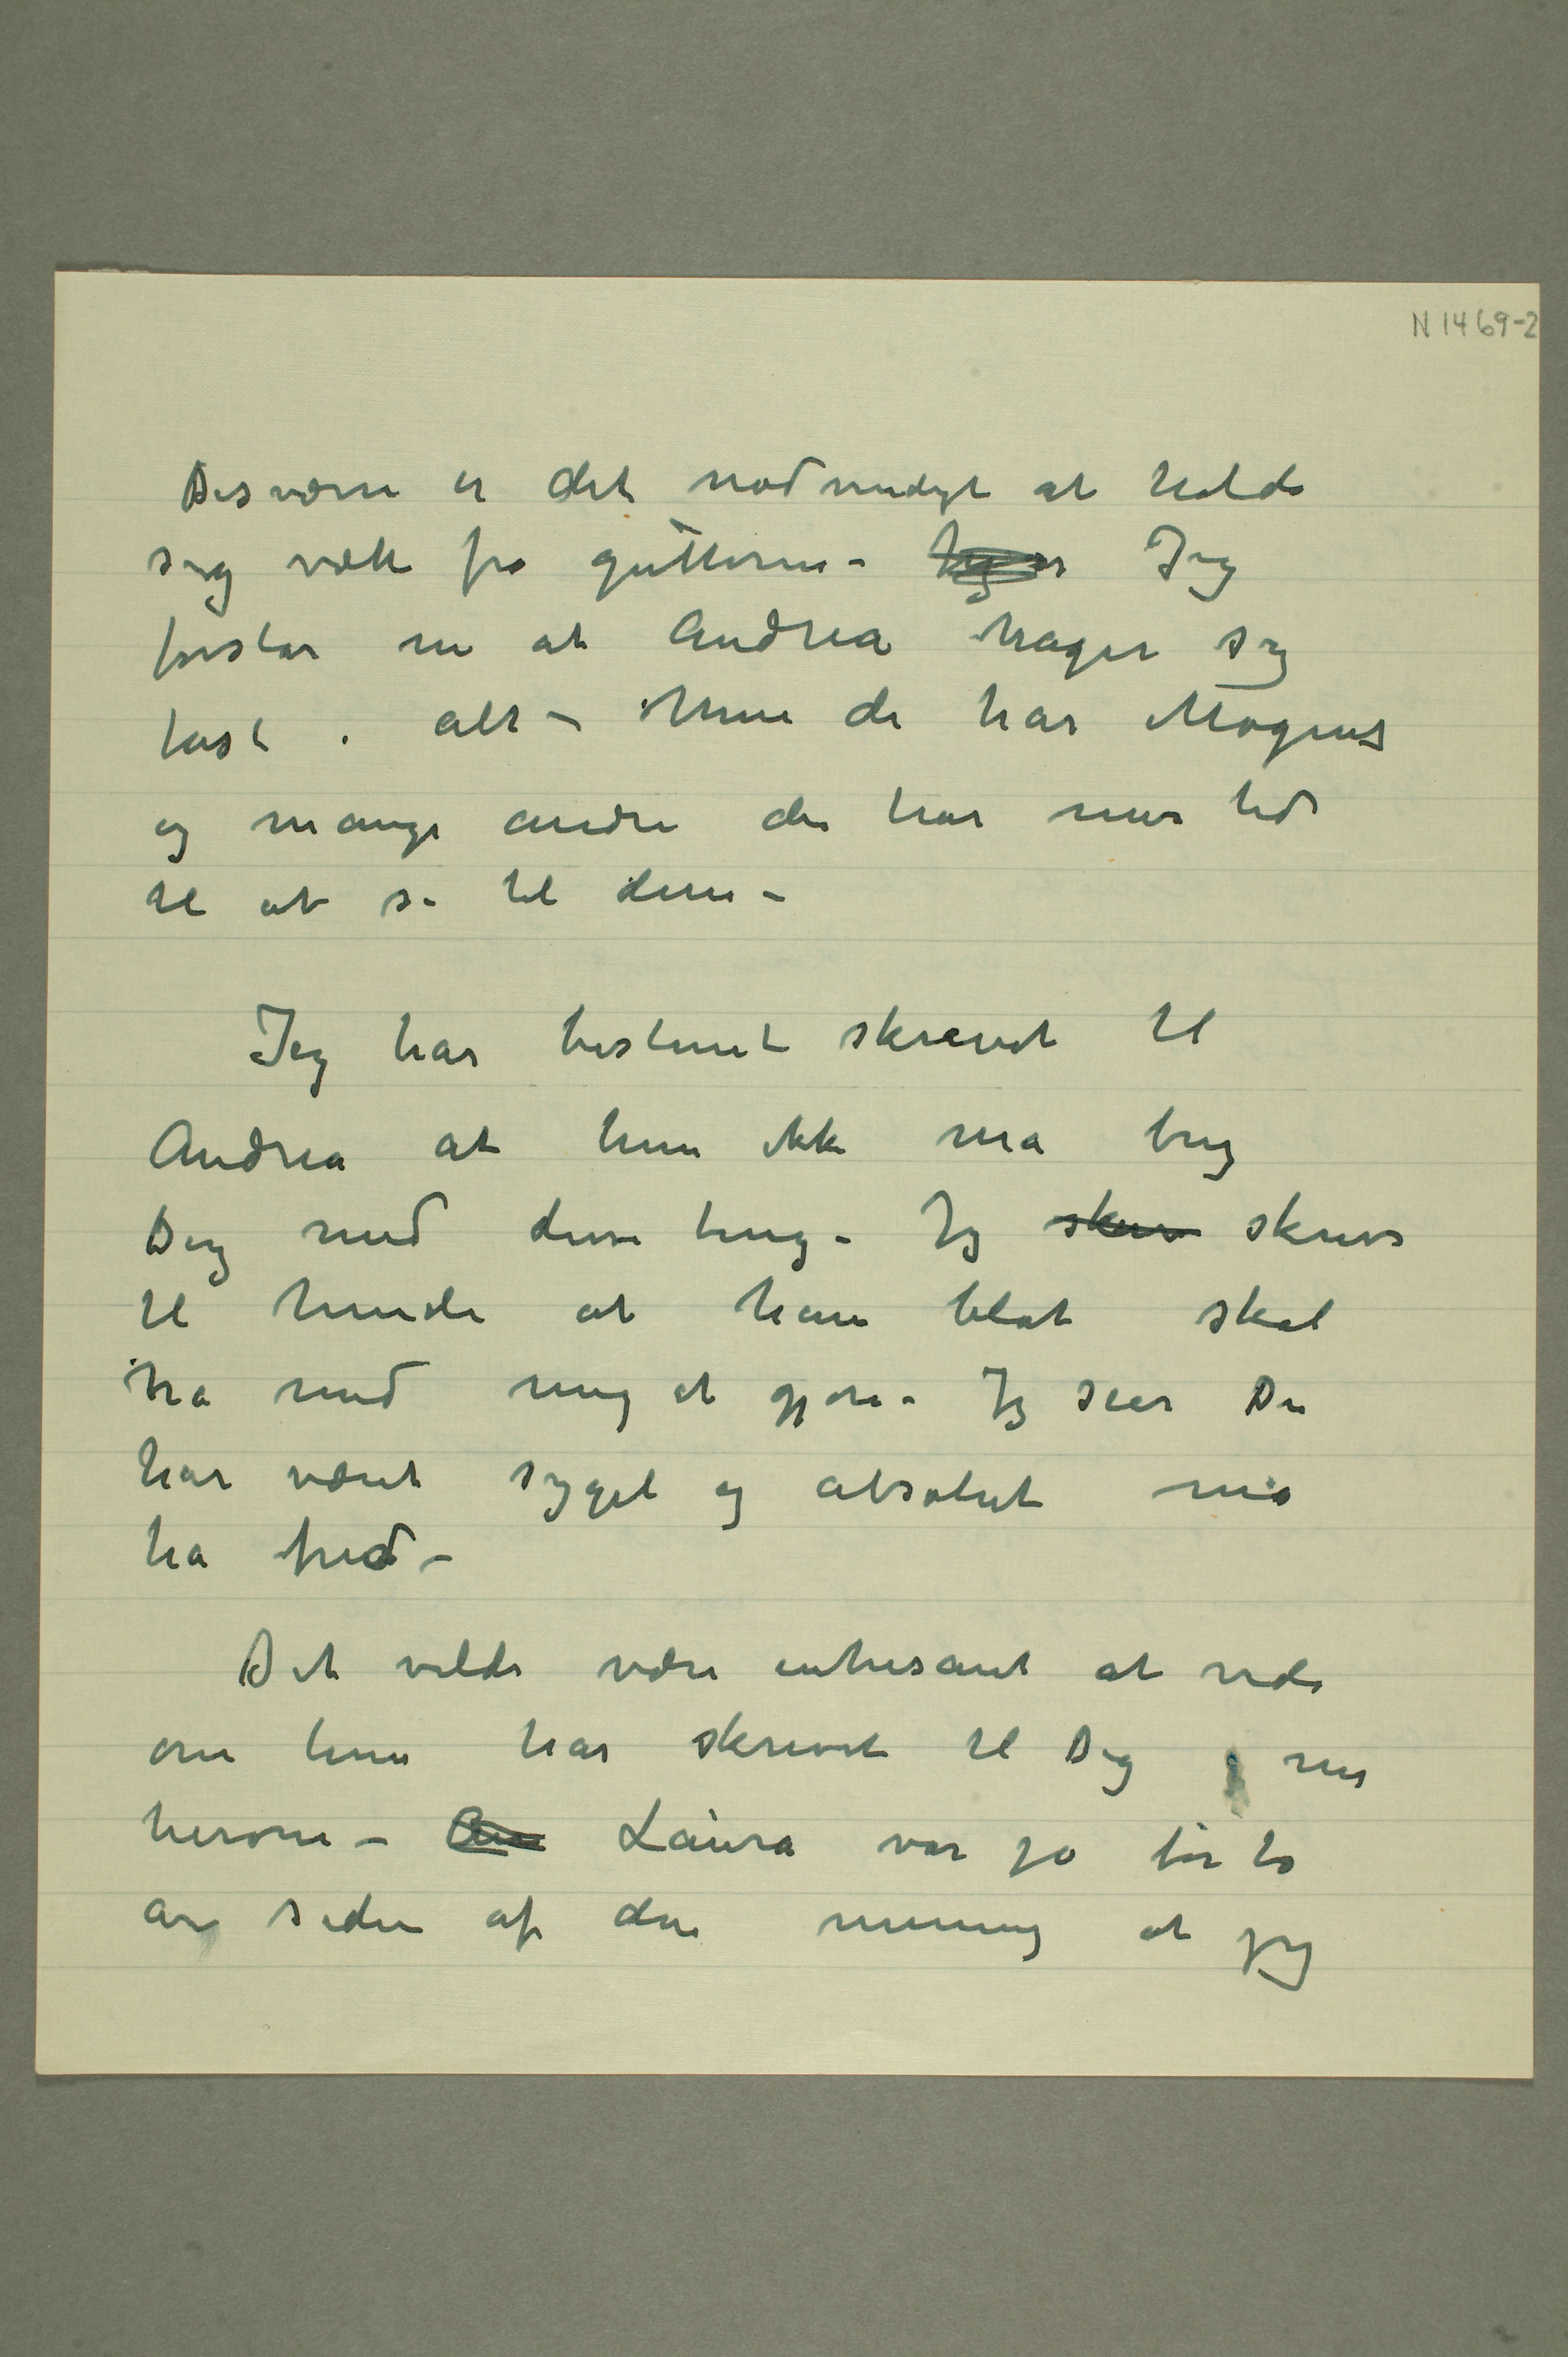 N 1469-2
Desværre er det nødvendigt at holde
sig vækk fra gutterne – Jeg
forstår nu at Andrea hager sig
fast i alt – Men de har Mogens
og mange andre der har mer tid
til at se til dem –
Jeg har bestemt skrevet til
Andrea at hun ikke må bry
Dig med disse ting – Jeg skrev skrev
til hende at hun blot skal
ha med mig at gjøre – Jeg seer Du
har været sygel og absolut må
ha fred –
Det vilde være interesant at vide
om hun har skrevet til Dig mer
herom – An Laura var jo for to
år siden af den mening at jeg